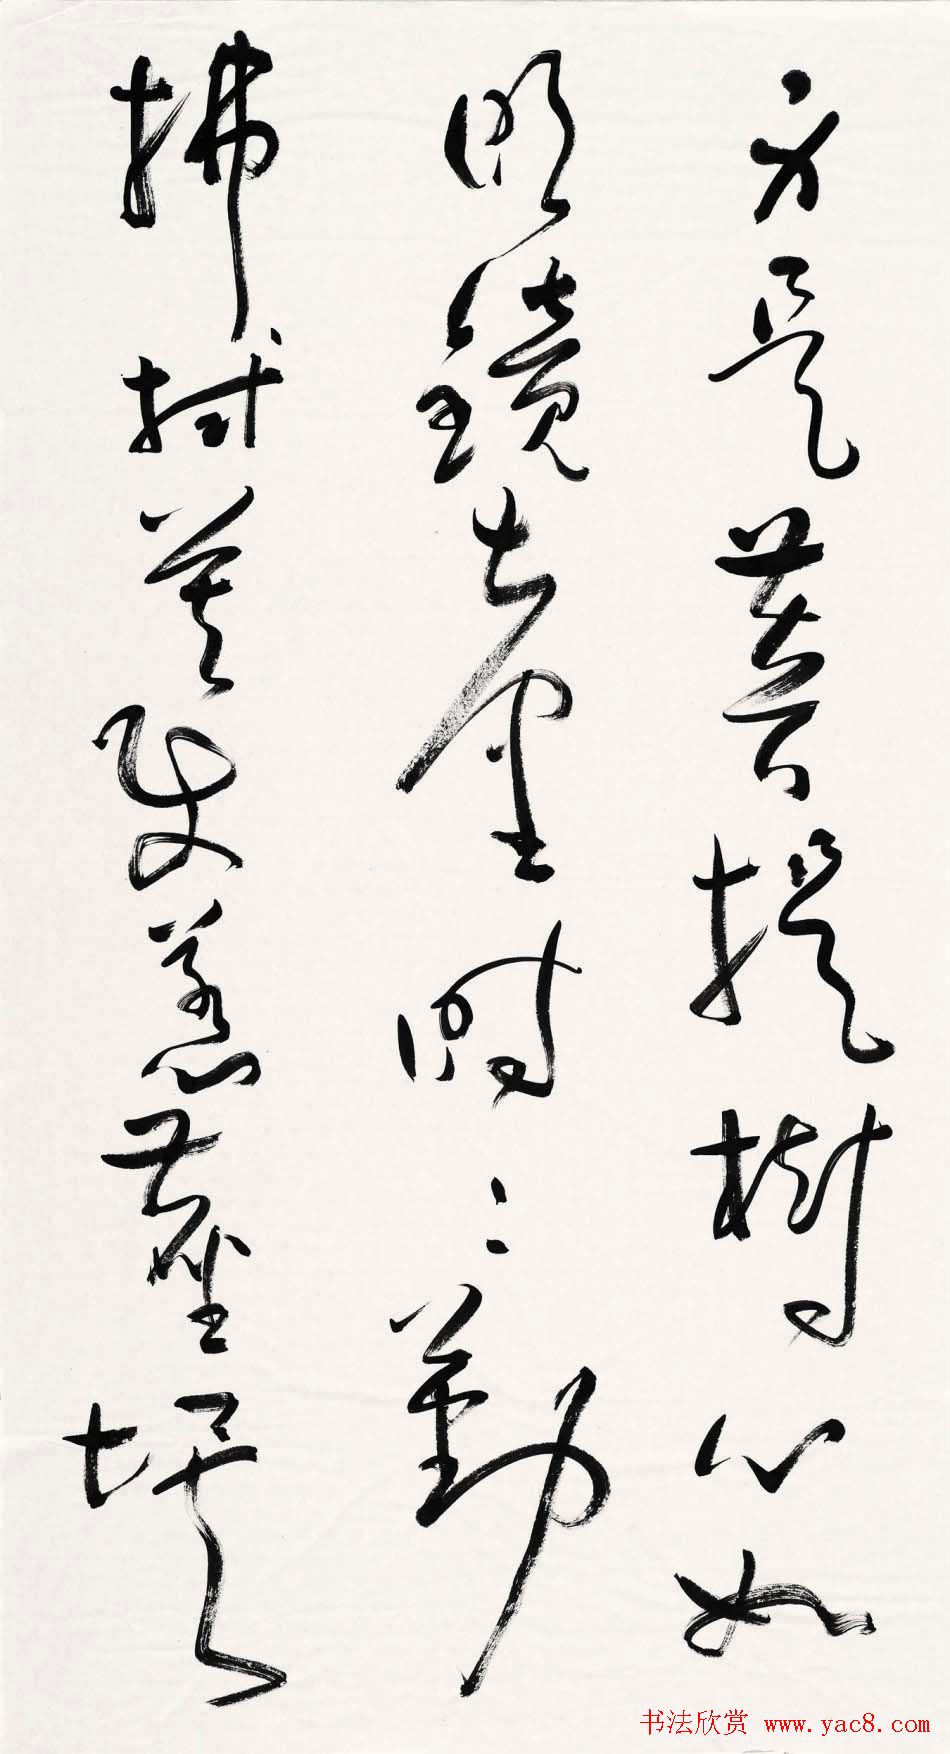 身是菩提樹心如
明鏡臺時々勤
拂拭莫使惹塵埃
书法欣赏 www.yac8.com